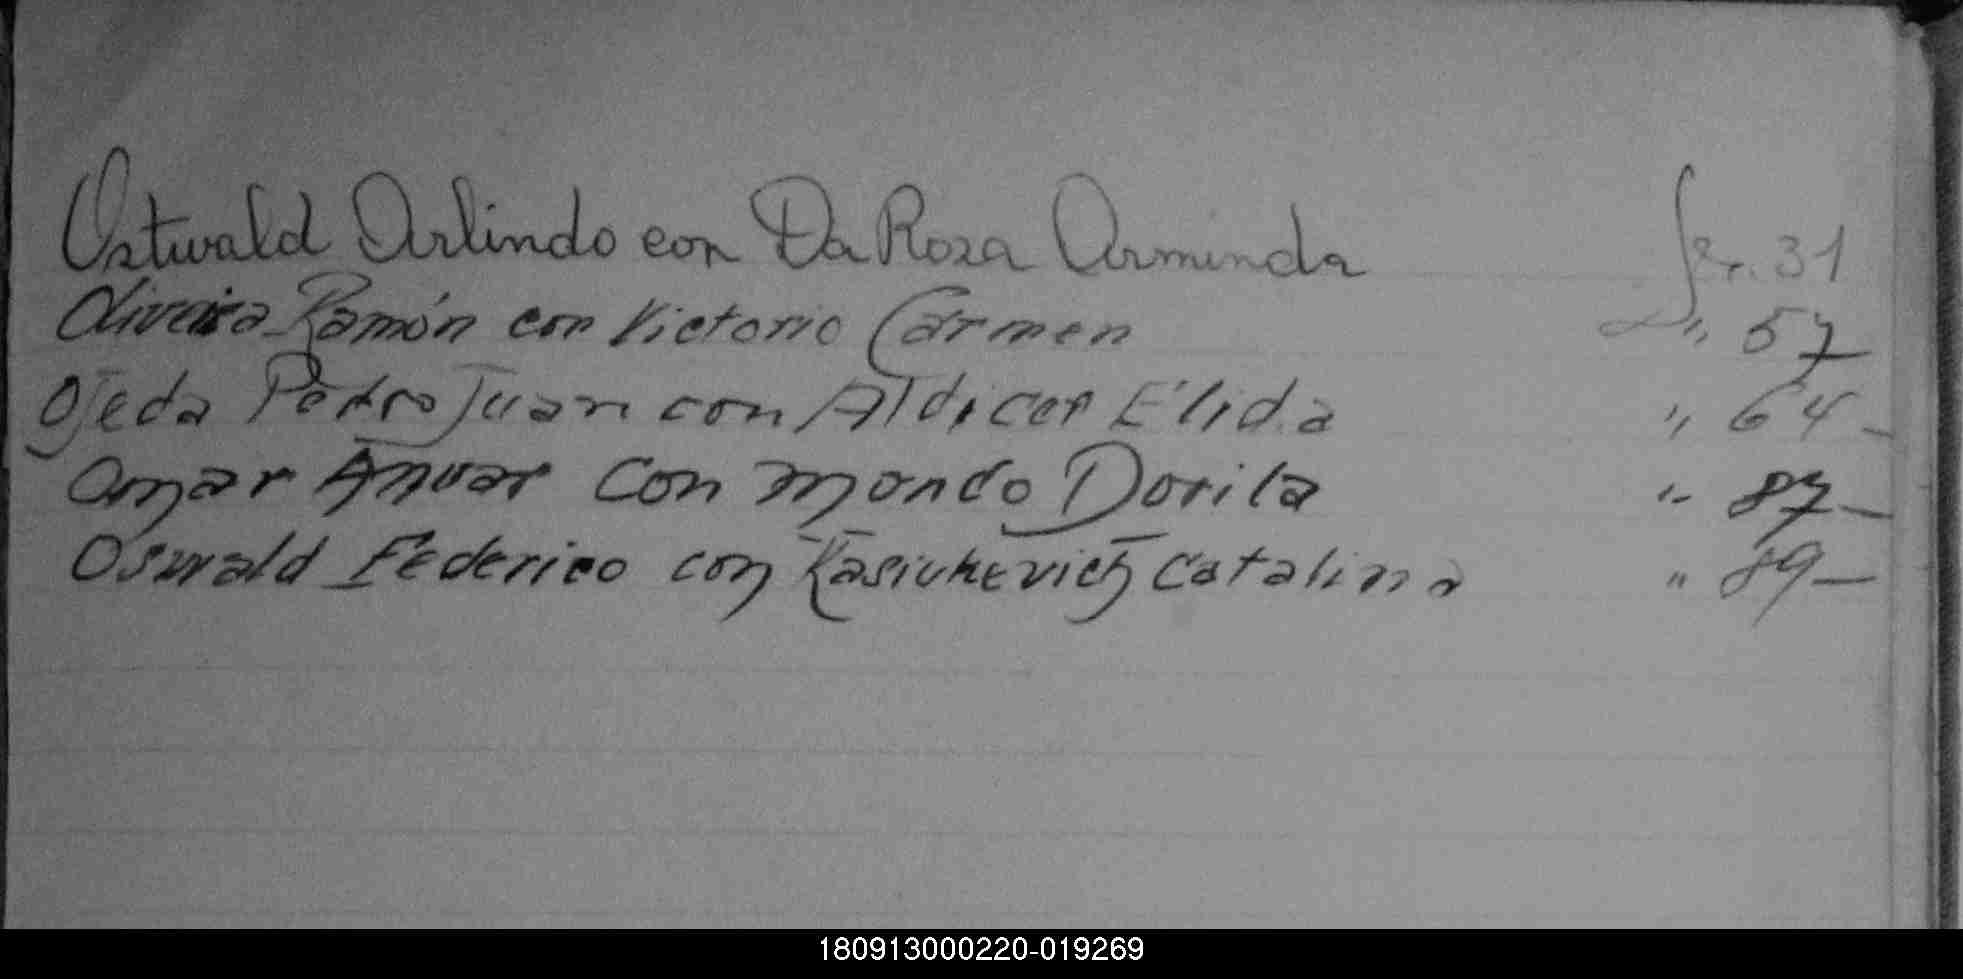 Ostwald Arlindo con Da Rosa Arminda fr. 31
Oliveira Ramón con Victorio Carmen " 57
Ojeda Pedro Juan con Aldicer Élida " 64-
Omar Anuar con Mondo Dorila " 87-
Oswald Federico con Kasiukevich Catalina " 89-
180913000220-019269